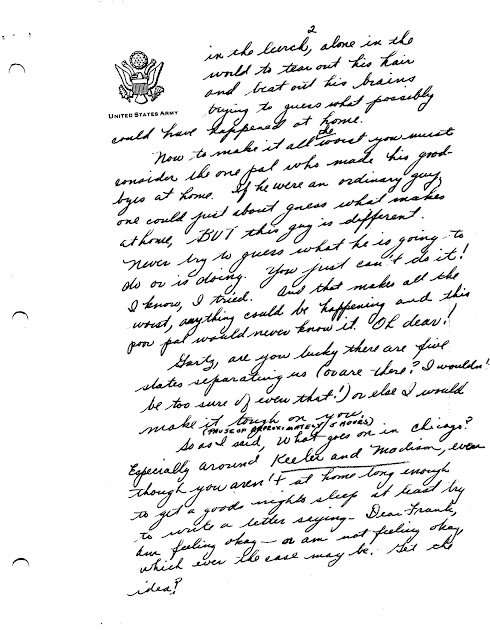 2
in the lurch, alone in the
world to tear out his hair
and beat out his brains
trying to guess what possibly
UNITED STATES ARMY
could have happened at home.
Now to make it all the worst you must
consider the one pal who made his good-
byes at home. If he were an ordinary guy,
one could just about guess what makes
at home, BUT this guy is different.
Never try to guess what he is going to
do or is doing. You just can't do it!
I know, I tried. And that makes all the
worst, anything could be happening and this
poor pal would never know it. Oh dear!
Gartz, are you lucky there are five
states separating us (or are there? I wouldn't
be too sure of even that!) or else I would
make it tough on you.
(PAUSE OF APPROXIMATELY 5 HOURS)
So as I said, what goes on in Chicago?
Especially around Keeler and Madison, even
though you aren't at home long enough
to get a goods nights sleep at least try
to write a letter saying - Dear Frank,
Am feeling okay - or am not feeling okay,
which ever the case may be. Get the
idea?